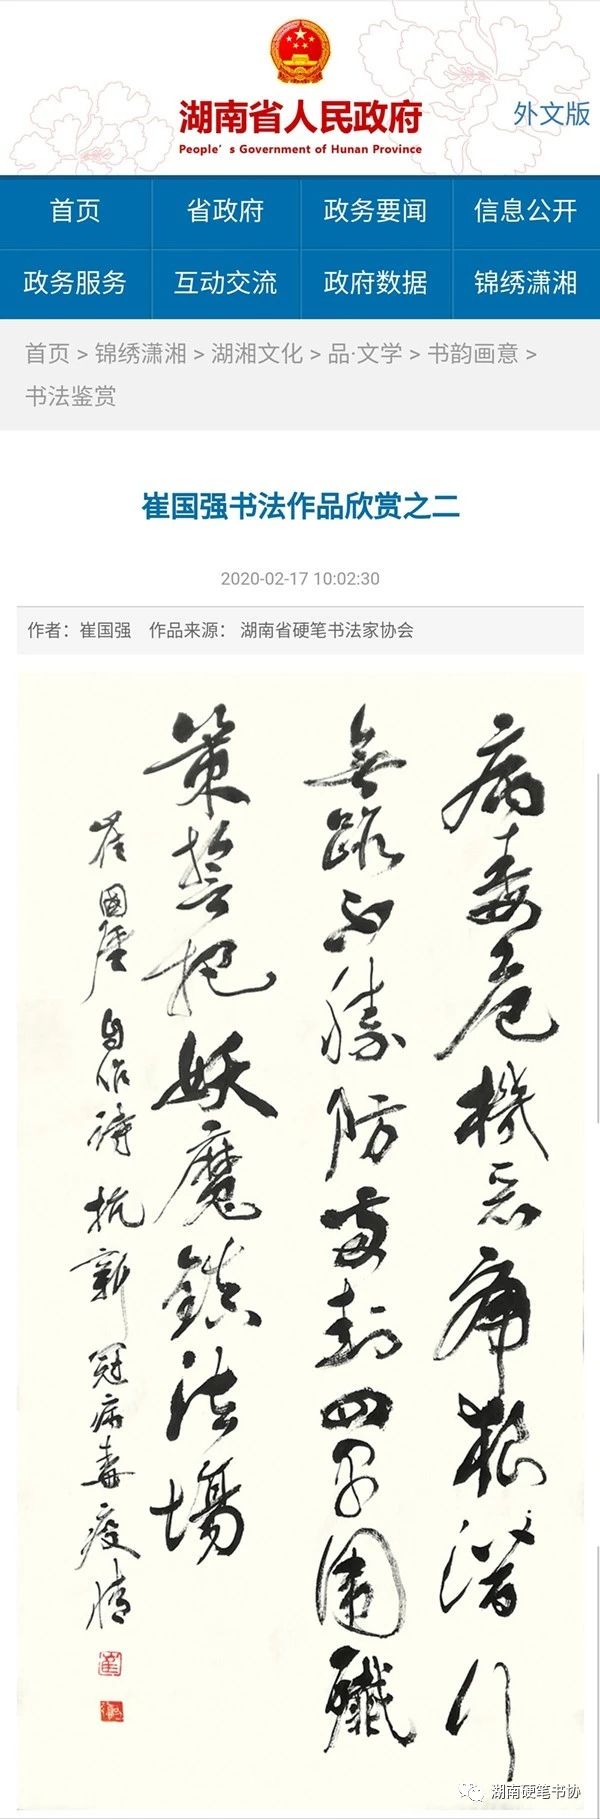 湖南省人民政府
People's Government of Hunan Province
外文版
首页 省政府 政务要闻 信息公开
政务服务 互动交流 政府数据 锦绣潇湘
首页 > 锦绣潇湘 > 湖湘文化 > 品·文学 > 书韵画意 >
书法鉴赏
崔国强书法作品欣赏之二
2020-02-17 10:02:30
作者：崔国强 作品来源： 湖南省硬笔书法家协会
病毒危機潛行
無不勝防封四圍殲
策誓把妖魔鎮法場
崔國強自作詩抗新冠病毒疫情
湖南硬笔书协